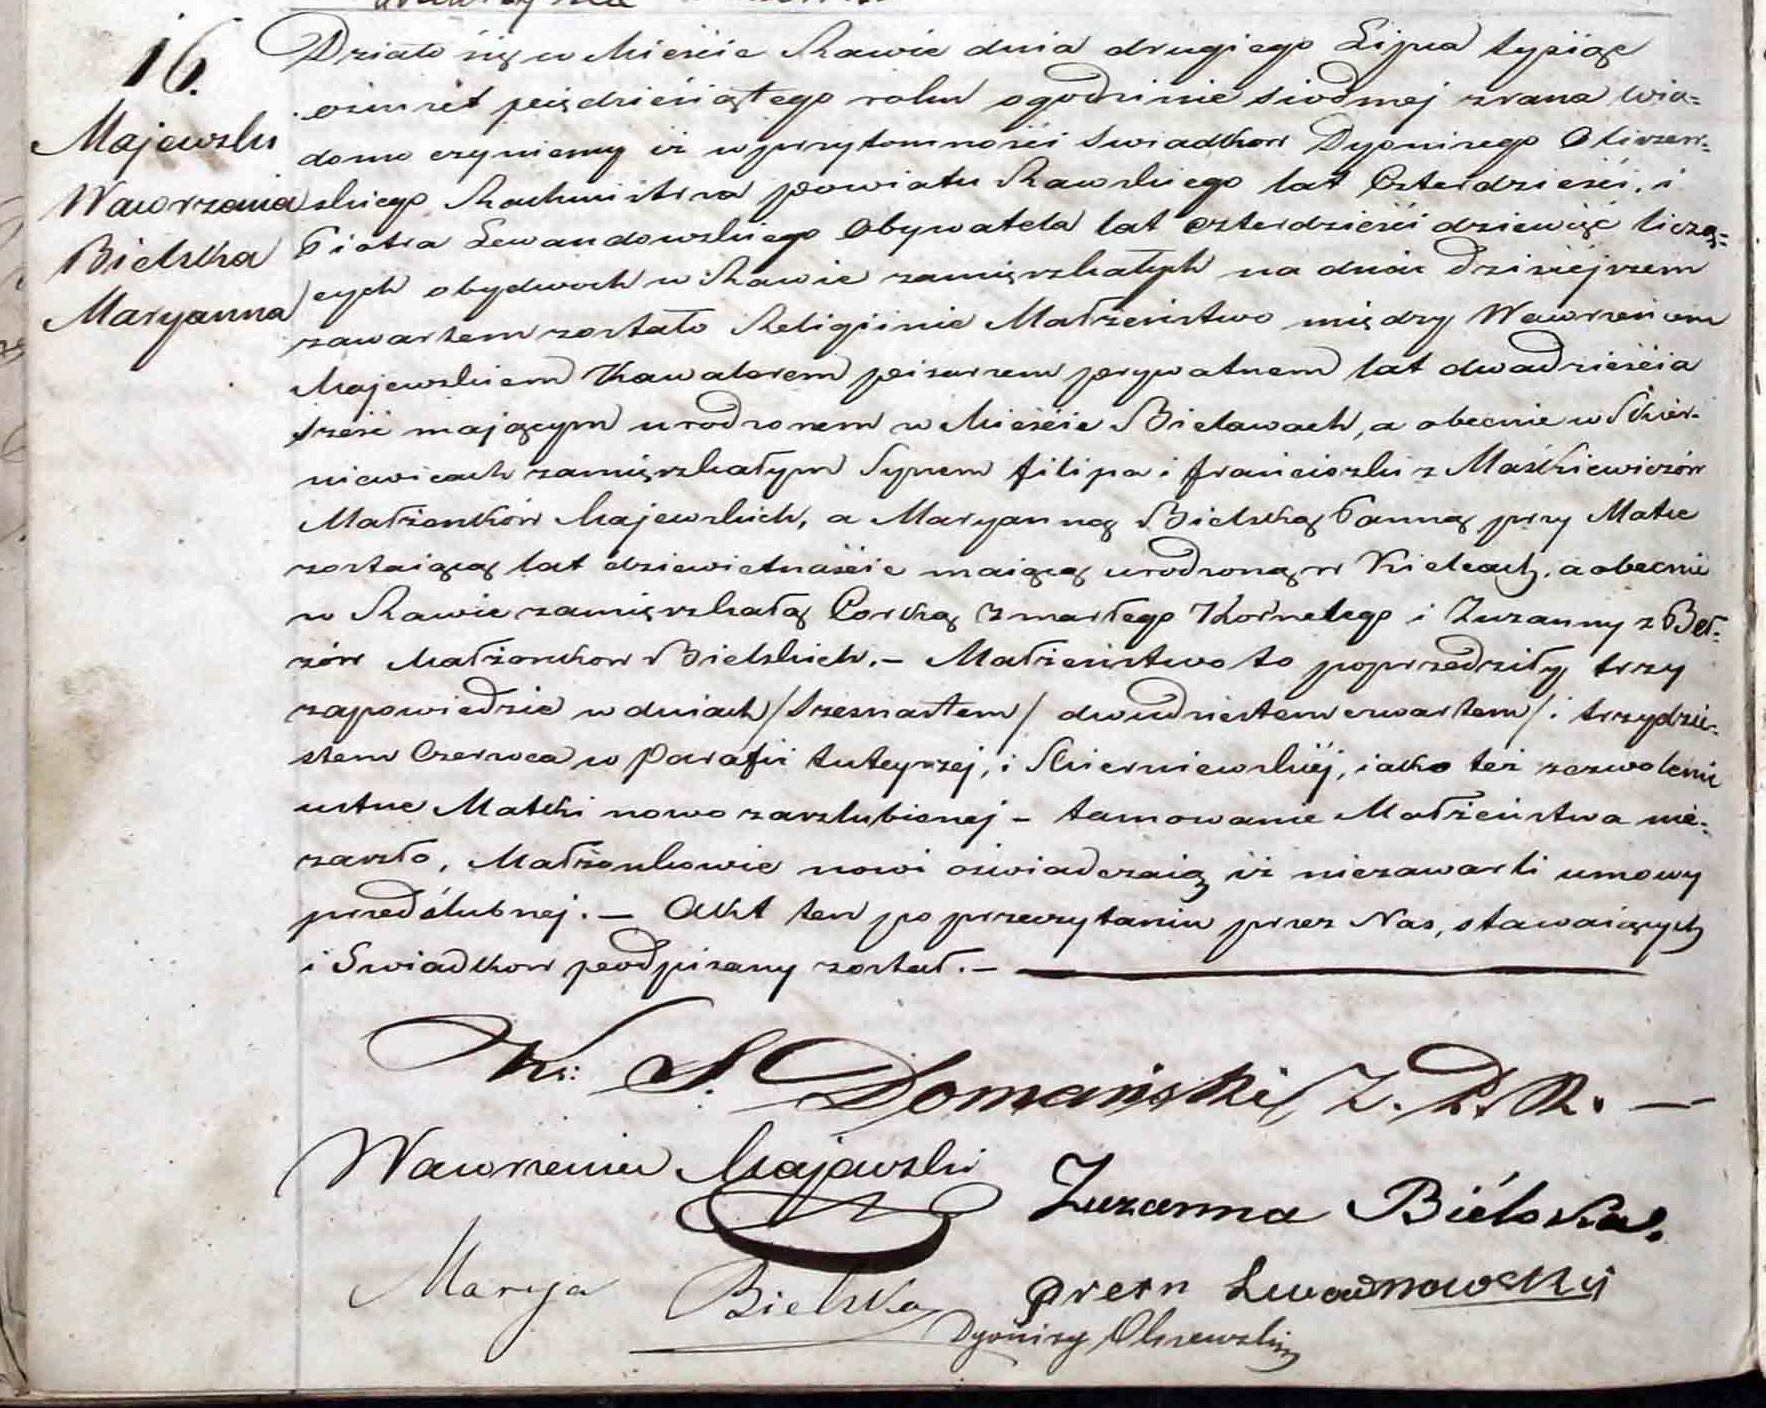 16.
Majewski
Wawrzenia
Bielska
Maryanna
Działo się w Mieście Rawie dnia drugiego Lipca tysiąc
ośmset piędziesiątego roku o godzinie siodmej zrana wia=
domo czyniemy iż w przytomności Swiadkow Dyonizego Olszew=
skiego Rachmistrza powiatu Rawskiego lat Czterdzieści, i
Piotra Lewandowskiego Obywatela lat czterdzieści dziewięć liczą=
cych obydwoch w Rawie zamięszkałych na dniu dzisiejszem
zawartem zostało Religijnie Małżeństwo między Wawrzeńcem
Majewskiem Kawalerem pisarzem prywatnem lat dwadzieścia
sześć mającym urodzonem w Mieście Bielawach, a obecnie w Skier-
niewicach zamięszkałym Synem Filipa i Franciszki z Maśkiewiczów
Małżonków Majewskich, a Maryanną Bielską Panną przy Matce
zostaiącą lat dziewietnaście maiącą urodzoną w Kielcach, a obecnie
w Rawie zamięszkałą Corką Zmarłego Kornelego i Zuzanny z Beł=
zów Małżonkow Bielskich. – Małżeństwo to poprzedziły trzy
zapowiedzie w dniach / szesnastem / dwudziestem czwartem / i trzydzie=
stem Czerwca w Parafii tuteyszej, i Skierniewskiéj, iako też zezwolenie
ustne Matki nowo zaszlubionej – tamowanie Małżeństwa nie=
zaszło, Małżonkowie nowi oświadczaią iż niezawarli umowy
przedślubnej. – Akt ten po przeczytaniu przez Nas, stawaiących
i Swiadkow podpisany został. –
Ks: S. Domański Z. P. R. –
Wawrzeniec Majewski
Zuzanna Biélska.
Maryja Bielska
Piotr Lewandowski
Dyonizy Olszewski